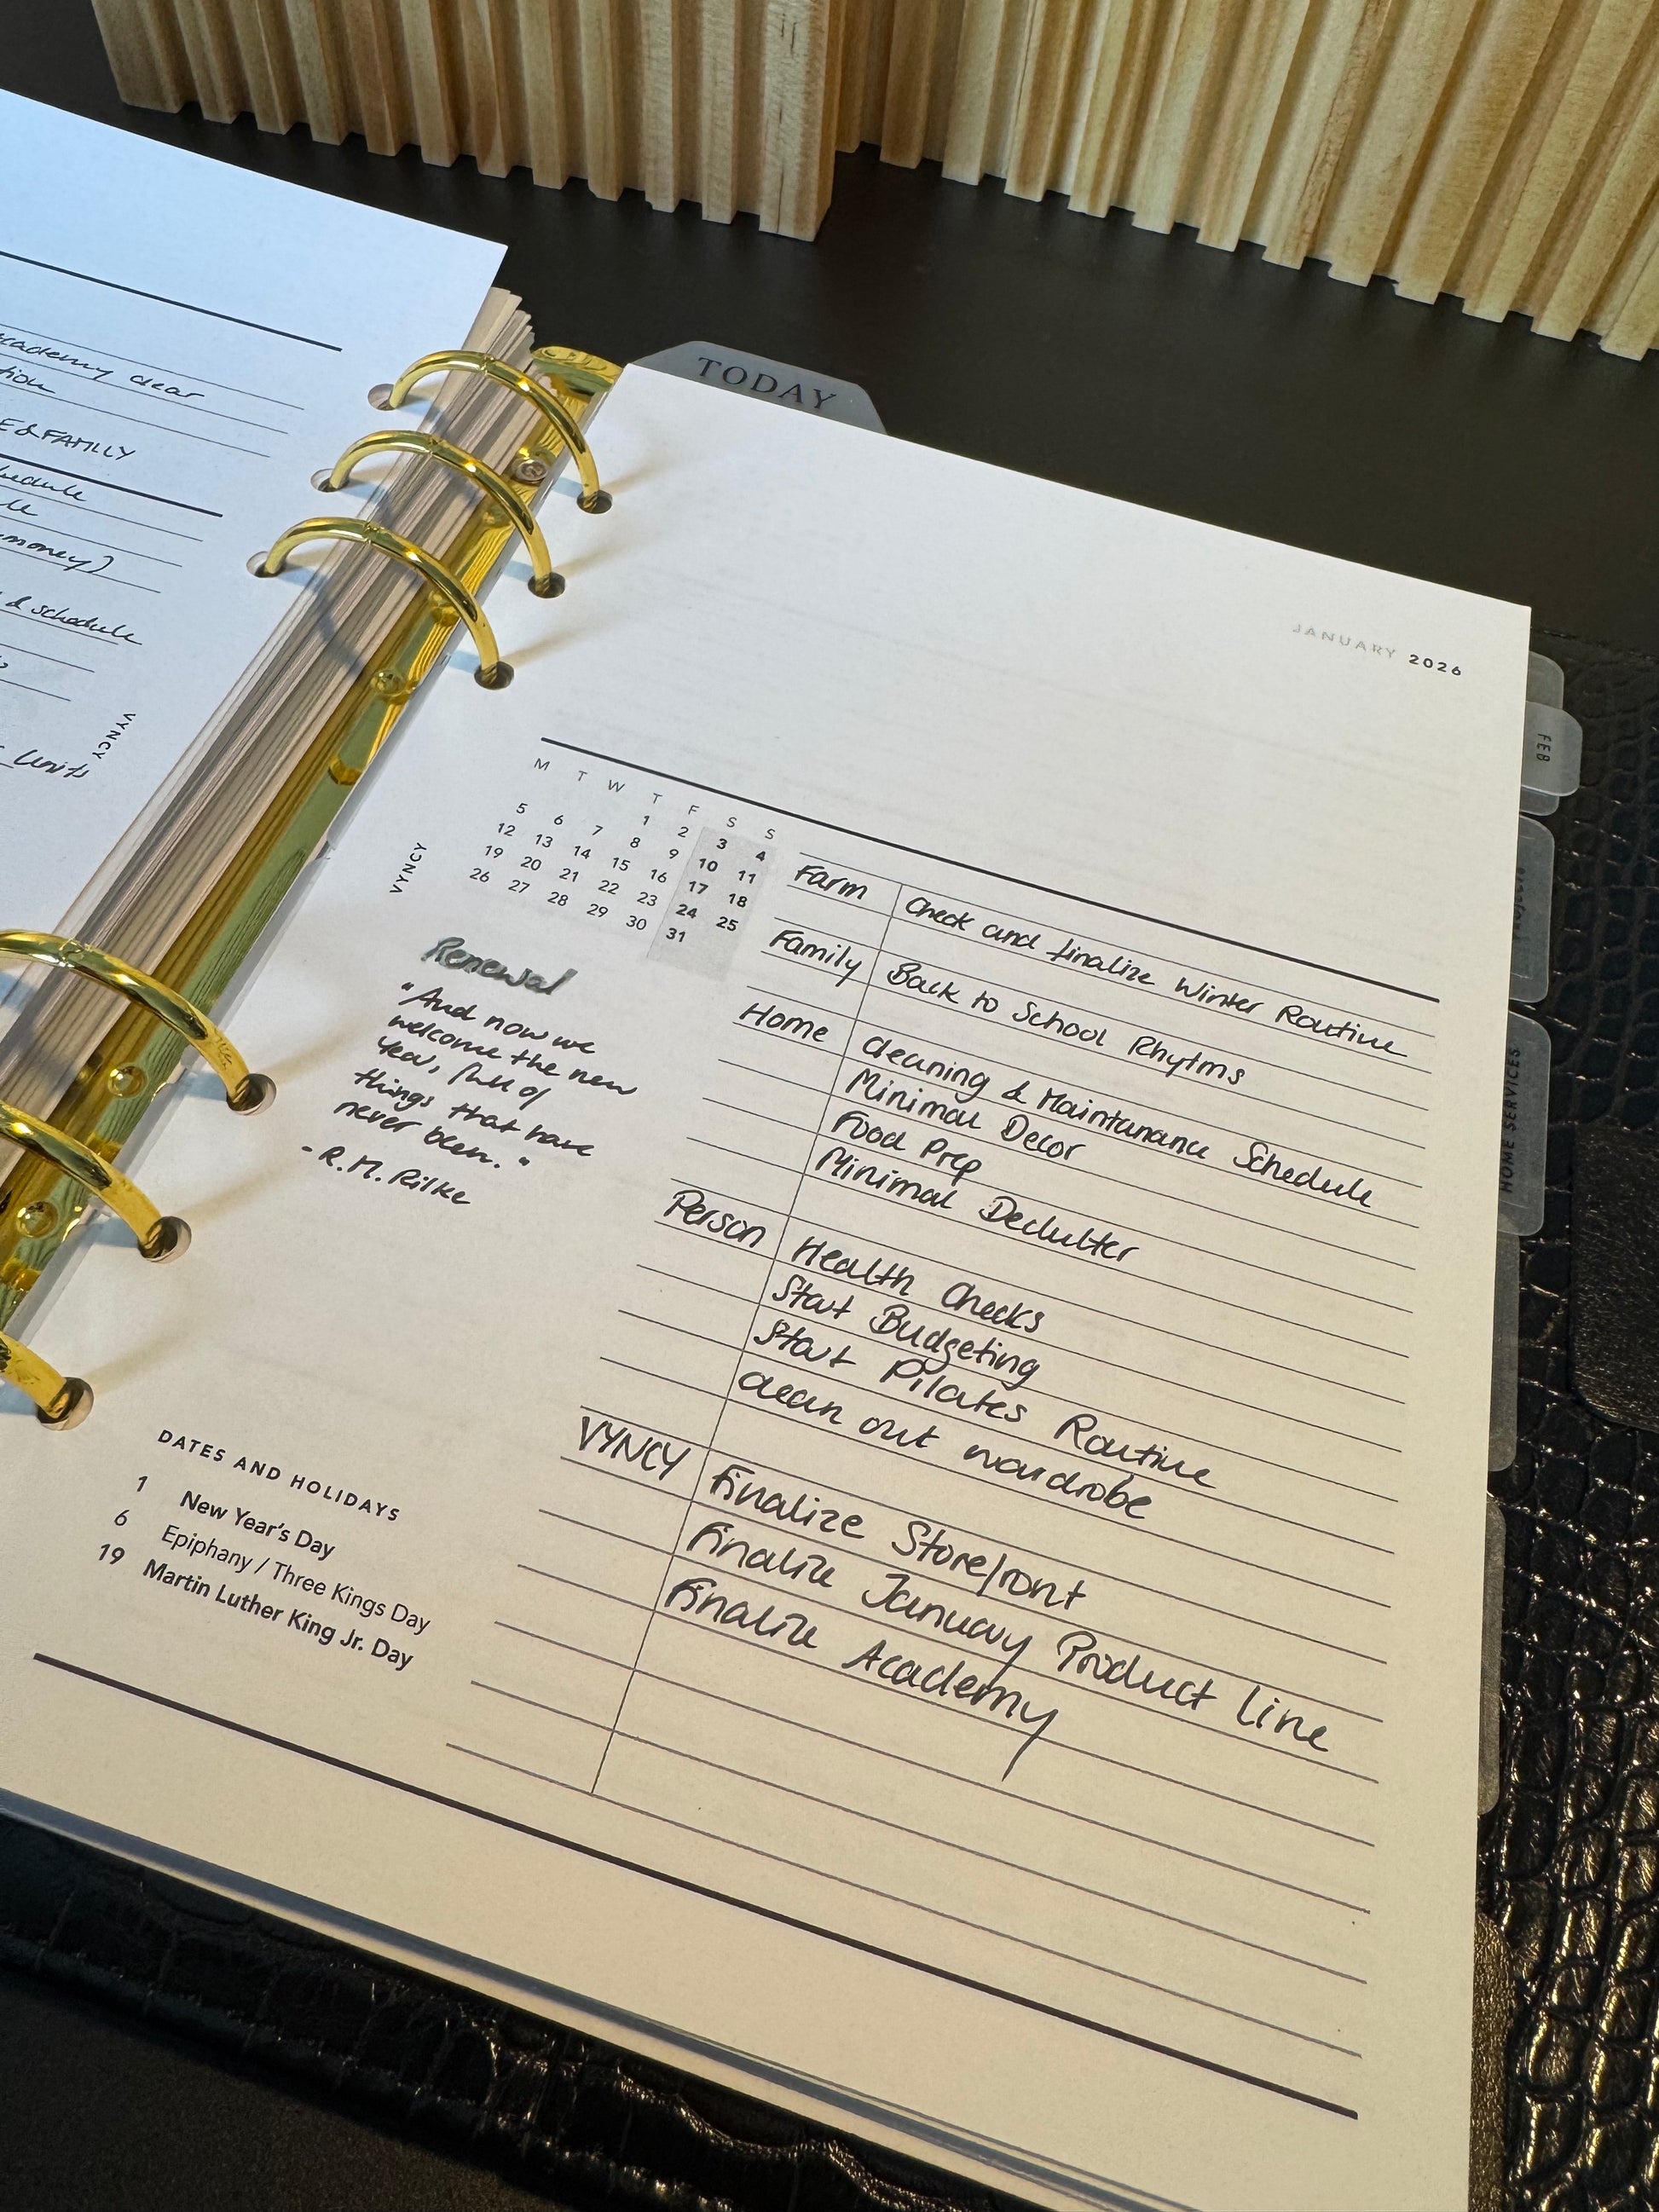 cademy clear
tion
E & FAMILY
hedule
le
(money)
& schedule
VYNCY
Units
TODAY
JANUARY 2026
FEB
HOME SERVICES
M T W T F S S
1 2 3 4
5 6 7 8 9 10 11
12 13 14 15 16 17 18
19 20 21 22 23 24 25
26 27 28 29 30 31
VYNCY
Renewal
"And now we
welcome the new
year, full of
things that have
never been."
- R.M. Rilke
DATES AND HOLIDAYS
1 New Year's Day
6 Epiphany / Three Kings Day
19 Martin Luther King Jr. Day
Farm Check and finalize Winter Routine
Family Back to School Rhytms
Home Cleaning & Maintanance Schedule
Minimal Decor
Food Prep
Minimal Declutter
Person Health Checks
Start Budgeting
Start Pilates Routine
clean out wardrobe
VYNCY Finalize Storefront
Finalize January Product Line
Finalize Academy